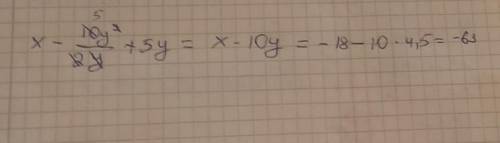 x - \frac{\overset{5}{\cancel{10}}y^{2}}{\cancel{2}\cancel{y}} + 5y = x - 10y = -18 - 10 · 4,5 = -63